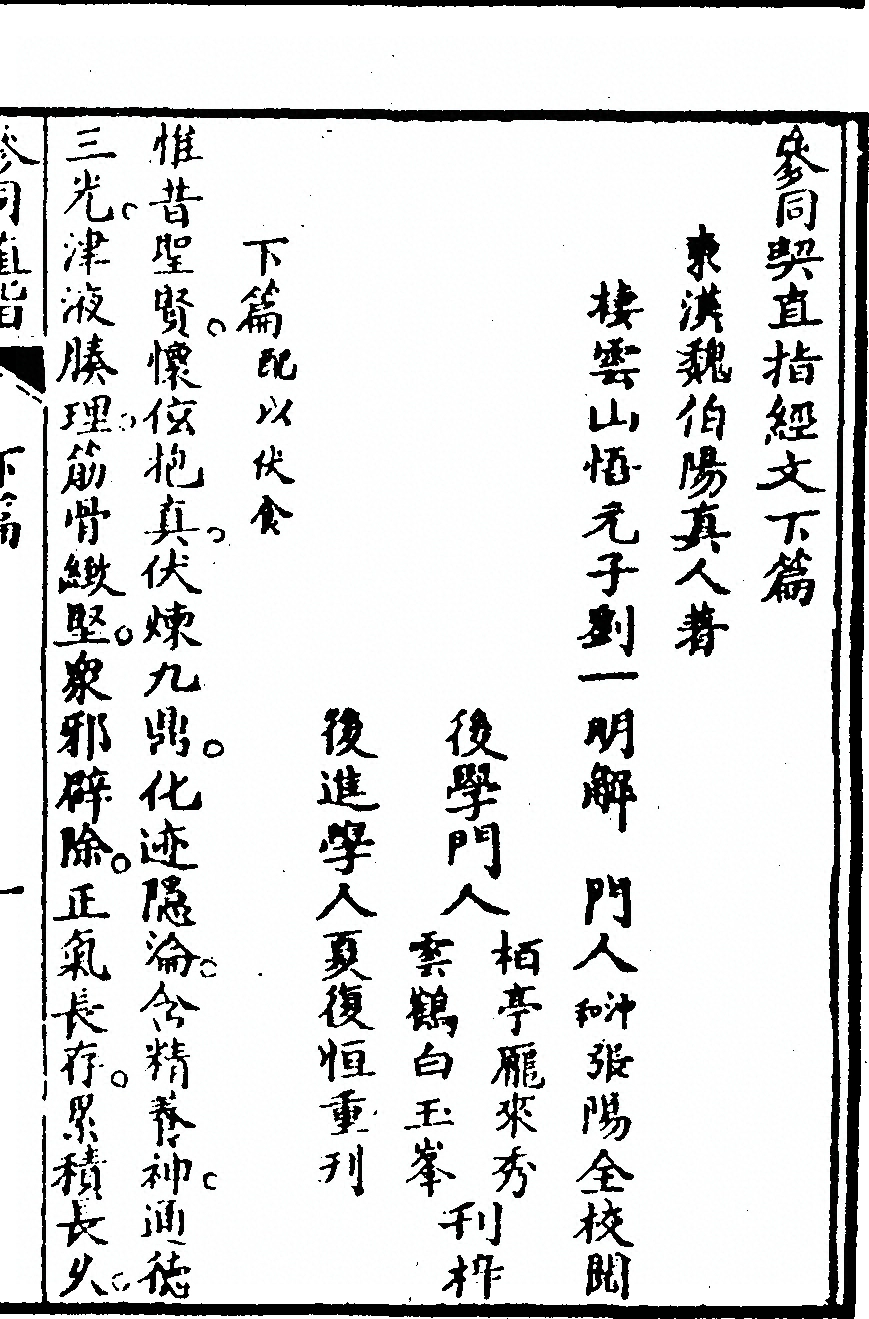 參同契直指經文下篇
東漢魏伯陽真人著
棲雲山悟元子劉一明解　門人沖和張陽全校閱
後學門人
栢亭龐來秀
雲鶴白玉峯
刊柞
後進學人夏復恒重刊
下篇配以伏食
惟昔聖賢。懷伭抱真。伏煉九鼎。化迹隱淪。含精養神。通德
三光。津液腠理。筋骨緻堅。衆邪辟除。正氣長存。累積長久。
參同直指
下篇
一